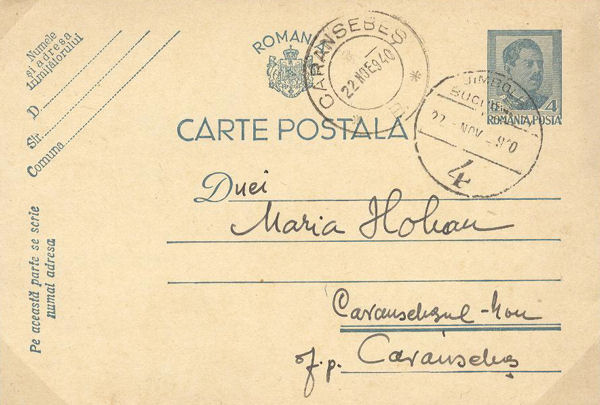 Numele
și adresa
trimițătorului
D.
Str.
Comuna
ROMANIA
CARANSEBEȘ
22 NOE 940
JIMBOL
BUCUR
22 NOV 940
4
4
ROMÂNIA POSTA
CARTE POSTALĂ
Pe această parte se scrie
numai adresa
Dnei
Maria Hohan
Caransebeșul-Nou
f.p. Caransebeș